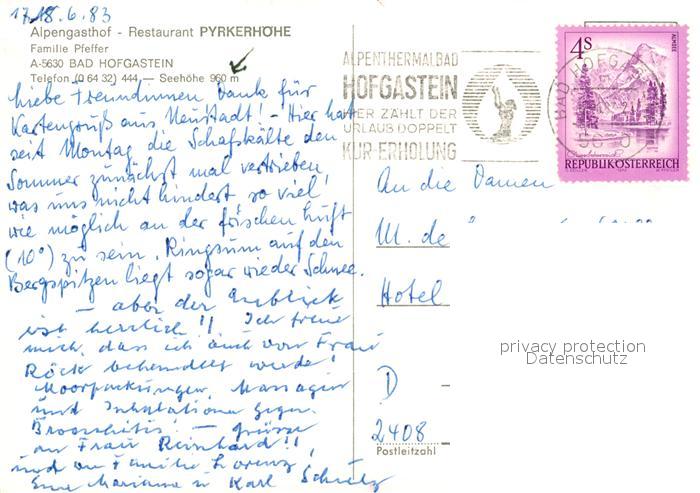 17.18.6.83
Alpengasthof - Restaurant PYRKERHÖHE
Familie Pfeffer
A-5630 BAD HOFGASTEIN
Telefon (0 64 32) 444 — Seehöhe 960 m
liebe Freundinnen Dank für
Kartengruß aus Neustadt! - Hier hat
seit Montag die Schafskälte den
Sommer zunächst mal vertrieben,
was uns nicht hindert so viel
wie möglich an der frischen Luft
(10°) zu sein. Ringsum auf den
Bergspitzen liegt sogar wieder Schnee.
- aber der Anblick
ist herrlich!! Ich freue
mich, dass ich auch von Frau
Röck behandelt werde!
Moorpackungen, Massagen
und Inhalationen gegen
Bronchitis! - Grüsse
an Frau Reinhard!!,
und an Familie Lorenz,
Eure Marianne u Karl Schütz
ALPENTHERMALBAD
HOFGASTEIN
HIER ZÄHLT DER
URLAUB DOPPELT
KUR-ERHOLUNG
BAD HOFGASTEIN
4S
ALMSEE
REPUBLIK ÖSTERREICH
An die Damen
M. de
Hotel
D
2408
Postleitzahl
privacy protection
Datenschutz